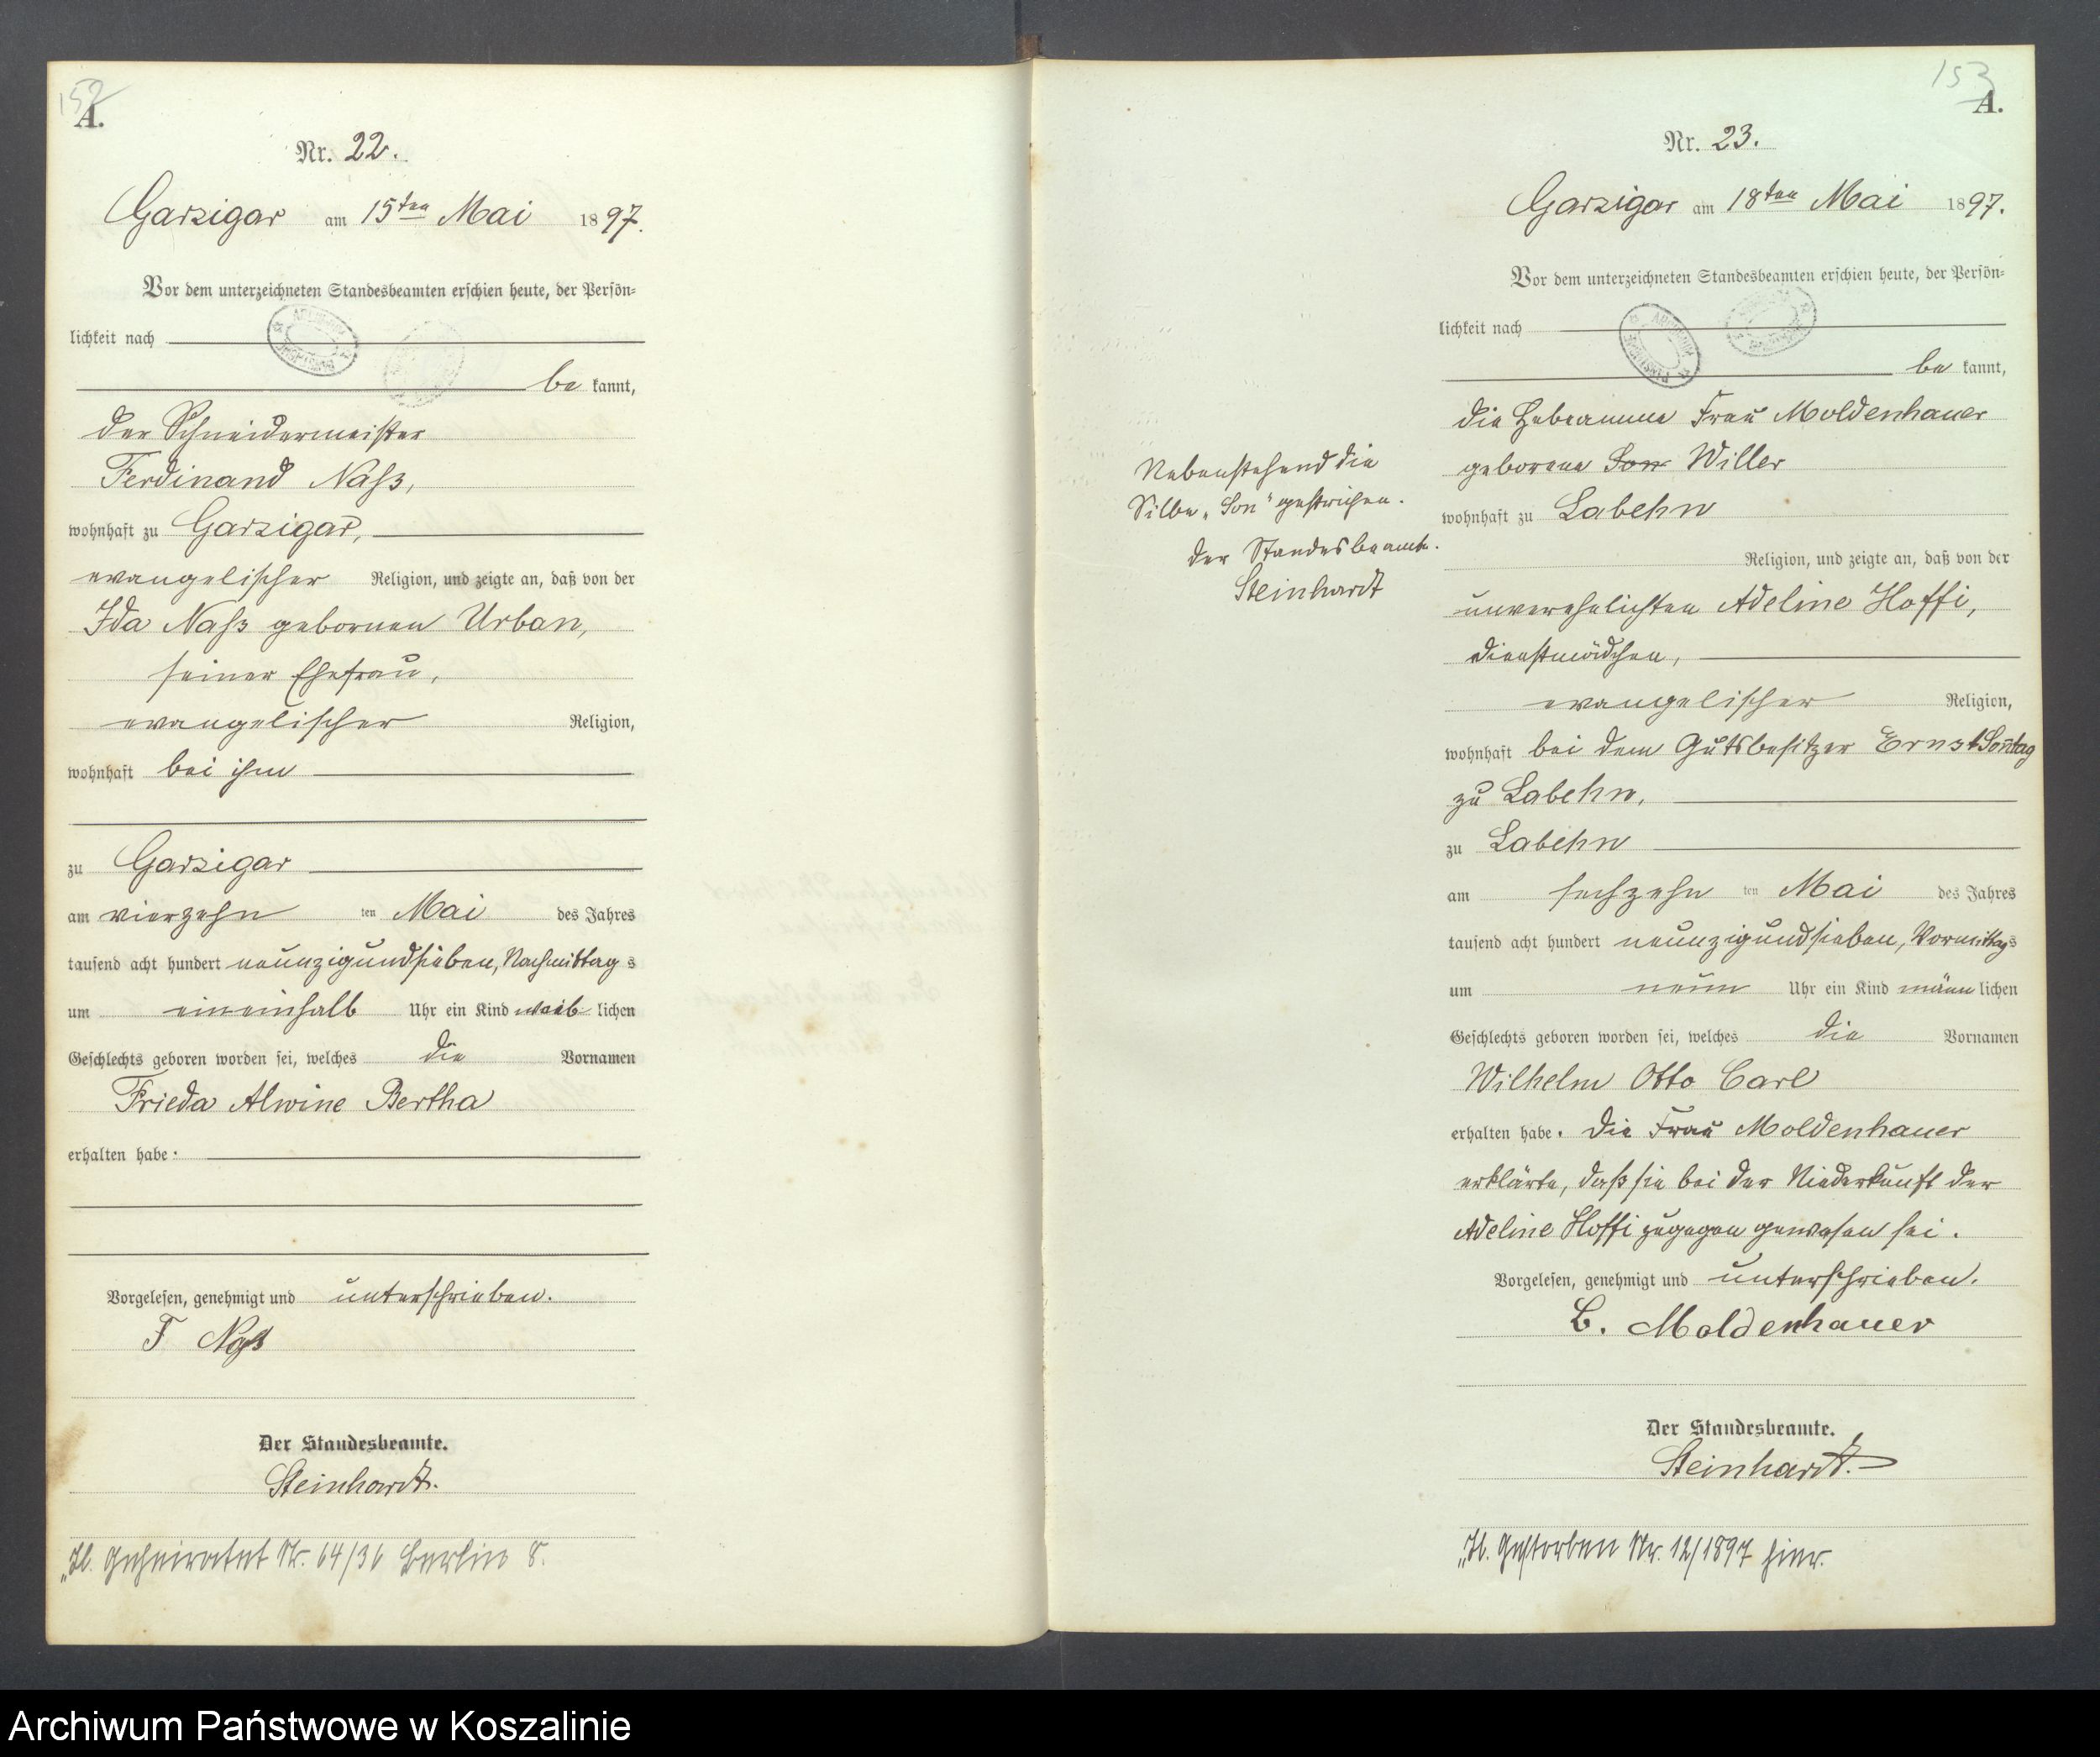 152
A.
Nr. 22.
Garzigar am 15ten Mai 1897.
Vor dem unterzeichneten Standesbeamten erschien heute, der Persön-
lichkeit nach
be kannt,
der Schneidermeister
Ferdinand Naß,
wohnhaft zu Garzigar,
evangelischer Religion, und zeigte an, daß von der
Ida Naß gebornen Urban,
seiner Ehefrau,
evangelischer Religion,
wohnhaft bei ihm
zu Garzigar
am vierzehn ten Mai des Jahres
tausend acht hundert neunzigundsieben, Nachmittag s
um eineinhalb Uhr ein Kind weib lichen
Geschlechts geboren worden sei, welches die Vornamen
Frieda Alwine Bertha
erhalten habe.
Vorgelesen, genehmigt und unterschrieben.
F Naß
Der Standesbeamte.
Steinhardt.
Geheiratet Nr. 64/36 Berlin 8.
153
A.
Nr. 23.
Garzigar am 18ten Mai 1897.
Vor dem unterzeichneten Standesbeamten erschien heute, der Persön-
lichkeit nach
be kannt,
die Hebeamme Frau Moldenhauer
geborene Son Willer
wohnhaft zu Labehn
Religion, und zeigte an, daß von der
unverehelichten Adeline Hoffi,
Dienstmädchen,
evangelischer Religion,
wohnhaft bei dem Gutsbesitzer Ernst Sontag
zu Labehn,
zu Labehn
am sechzehn ten Mai des Jahres
tausend acht hundert neunzigundsieben, Vormittags
um neun Uhr ein Kind männ lichen
Geschlechts geboren worden sei, welches die Vornamen
Wilhelm Otto Carl
erhalten habe. Die Frau Moldenhauer
erklärte, daß sie bei der Niederkunft der
Adeline Hoffi zugegen gewesen sei.
Vorgelesen, genehmigt und unterschrieben.
B. Moldenhauer
Der Standesbeamte.
Steinhardt.
Gestorben Nr. 12/1897 hier.
Nebenstehend die
Silbe "Son" gestrichen.
der Standesbeamte.
Steinhardt
Archiwum Państwowe w Koszalinie